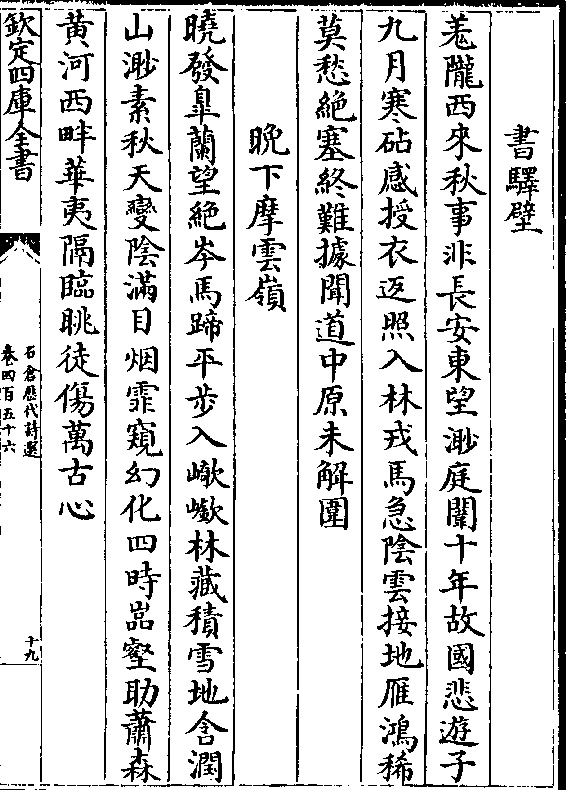 書驛壁
羗隴西來秋事非長安東望渺庭闈十年故國悲遊子
九月寒砧感授衣返照入林戎馬急陰雲接地雁鴻稀
莫愁絶塞終難據聞道中原未解圍
晩下摩雲嶺
曉發臯蘭望絶岑馬蹄平步入嶔林藏積雪地含潤
山渺素秋天變陰滿目烟霏窺幻化四時嵓壑助蕭森
黄河西畔華夷隔臨眺徒傷萬古心
欽定四庫全書
石倉歴代詩選
卷四百五十六
十九